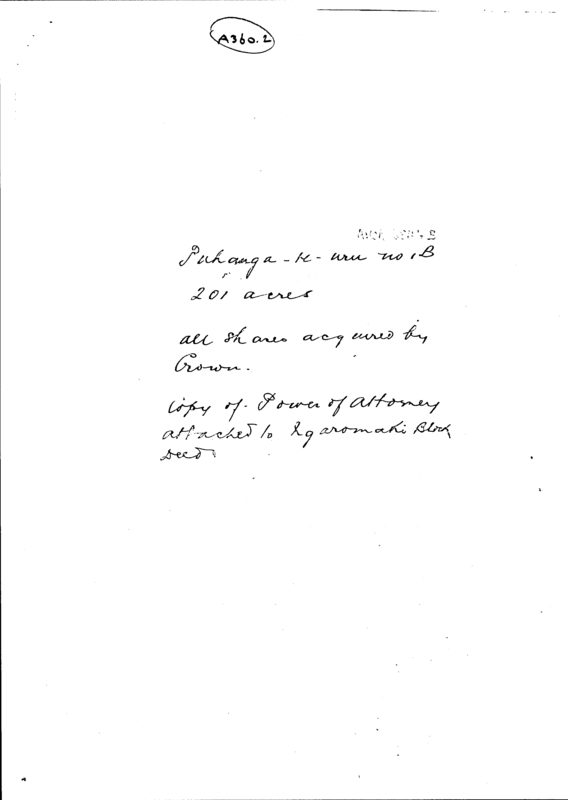 A360.2
Puhanga-te-uru no 1B
201 acres
all shares acquired by
Crown.
Copy of Power of Attorney
attached to Ngaromaki Block
Deed